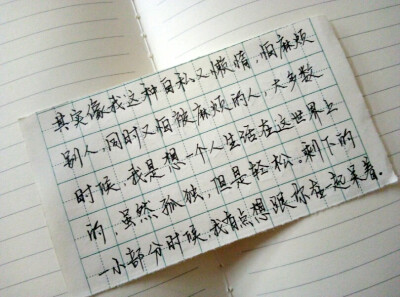 其实像我这种自私又懒惰，怕麻烦
别人，同时又怕被麻烦的人，大多数
时候，我是想一个人生活在这世界上
的，虽然孤独，但是轻松。剩下的
一小部分时候，我有点想跟你在一起呆着。